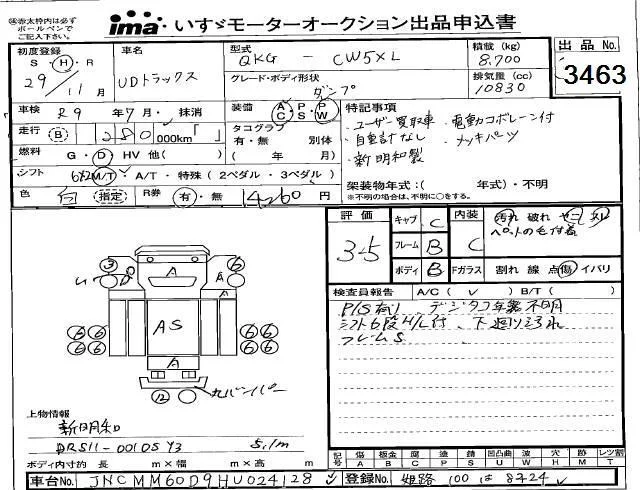 ※赤太枠内は必ず
ボールペンで
ご記入下さい。
ima いすゞモーターオークション出品申込書
初度登録 S・H・R 29/11月
車名 UDトラックス
型式 QKG - CW5XL
積載(kg) 8,700
出品No. 3463
グレード・ボディ形状 ダンプ
排気量(cc) 10830
車検 R9年7月・抹消
装備 AC・PS・PW
特記事項
・ユーザー買取車 ・電動コボレーン付
・自重計なし ・メッキパーツ
・新明和製
走行 B 280,000km「 」
タコグラフ 有・無 別体
( 年 月)
燃料 G・D HV 他( )
シフト 6速M/T・A/T・特殊(2ペダル・3ペダル)
架装物年式:( 年式)・不明
※不明の場合は、不明に○をする。
色 白 指定 R券 有・無 14260円
評価 3.5
キャブ C
フレーム B
ボディ B
内装 C
汚れ 破れ
ペットの毛付着
Fガラス 割れ 線 点傷 イバリ
検査員報告 A/C( ✓ ) B/T( )
P/S有り、デジタコ年製不明
シフト6段H/L付、下廻りよごれ
フレームS
3 6
A
A
6 6 AS 6 6
6 6 6 6
A
12
カバンパー
上物情報
新明和
DRS11-00105Y3 5.1m
ボディ内寸約 長 m×幅 m×高 m
記号 傷 板金 腐 塗 錆 凹凸曲 波 穴 跡 レンズ割
A B C P S U W H M L
車台No. JNCMM60D9HU024128
登録No. 姫路 100 は 8724